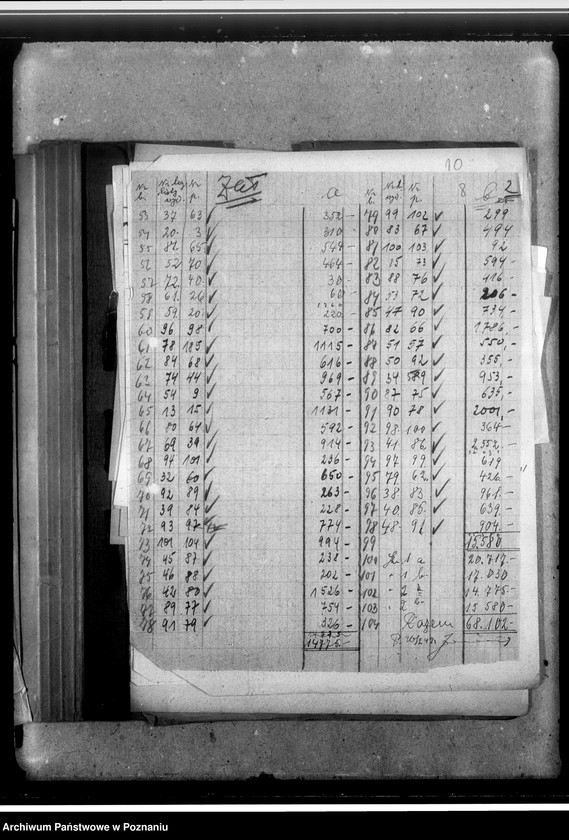 10
Zał.
a
8
b 2
53 37 63 352 - 79 99 102 299
54 20 3 310 - 80 83 67 494
55 81 65 544 - 81 100 103 92
52 70 464 - 82 15 73 594 -
72 40 30 - 83 88 76 416 -
58 61 26 60 - 84 72
59 20 220 - 85 47 90 734 -
60 96 98 700 - 86 82 66 1786,-
61 78 105 1115 - 88 51 57 550,-
62 84 68 616 - 88 50 92 355,-
63 74 44 969 - 89 34 953,-
64 54 9 567 - 90 87 75 635,-
65 13 15 1131 - 91 90 78 2001,-
66 80 64 592 - 92 98 100 364 -
67 69 39 914 - 93 41 86 2352,-
68 94 101 236 - 94 97 99 619
69 32 60 650 - 95 79 62 426 -
70 92 89 263 - 96 38 83 961,-
71 39 84 228 - 97 40 85 639,-
72 93 97 774 - 98 48 91 904,-
73 101 104 994 - 99 15,580
74 45 87 232 - 100 1 a 20.717,-
75 46 88 202 - 101 - 1 b 17.030
76 42 80 1526 - 102 - 2 a 14.775 -
89 77 754 - 103 - 2 b 15.580 -
78 91 79 326 - 104 Razem 68.102,-
14775,-
Archiwum Państwowe w Poznaniu